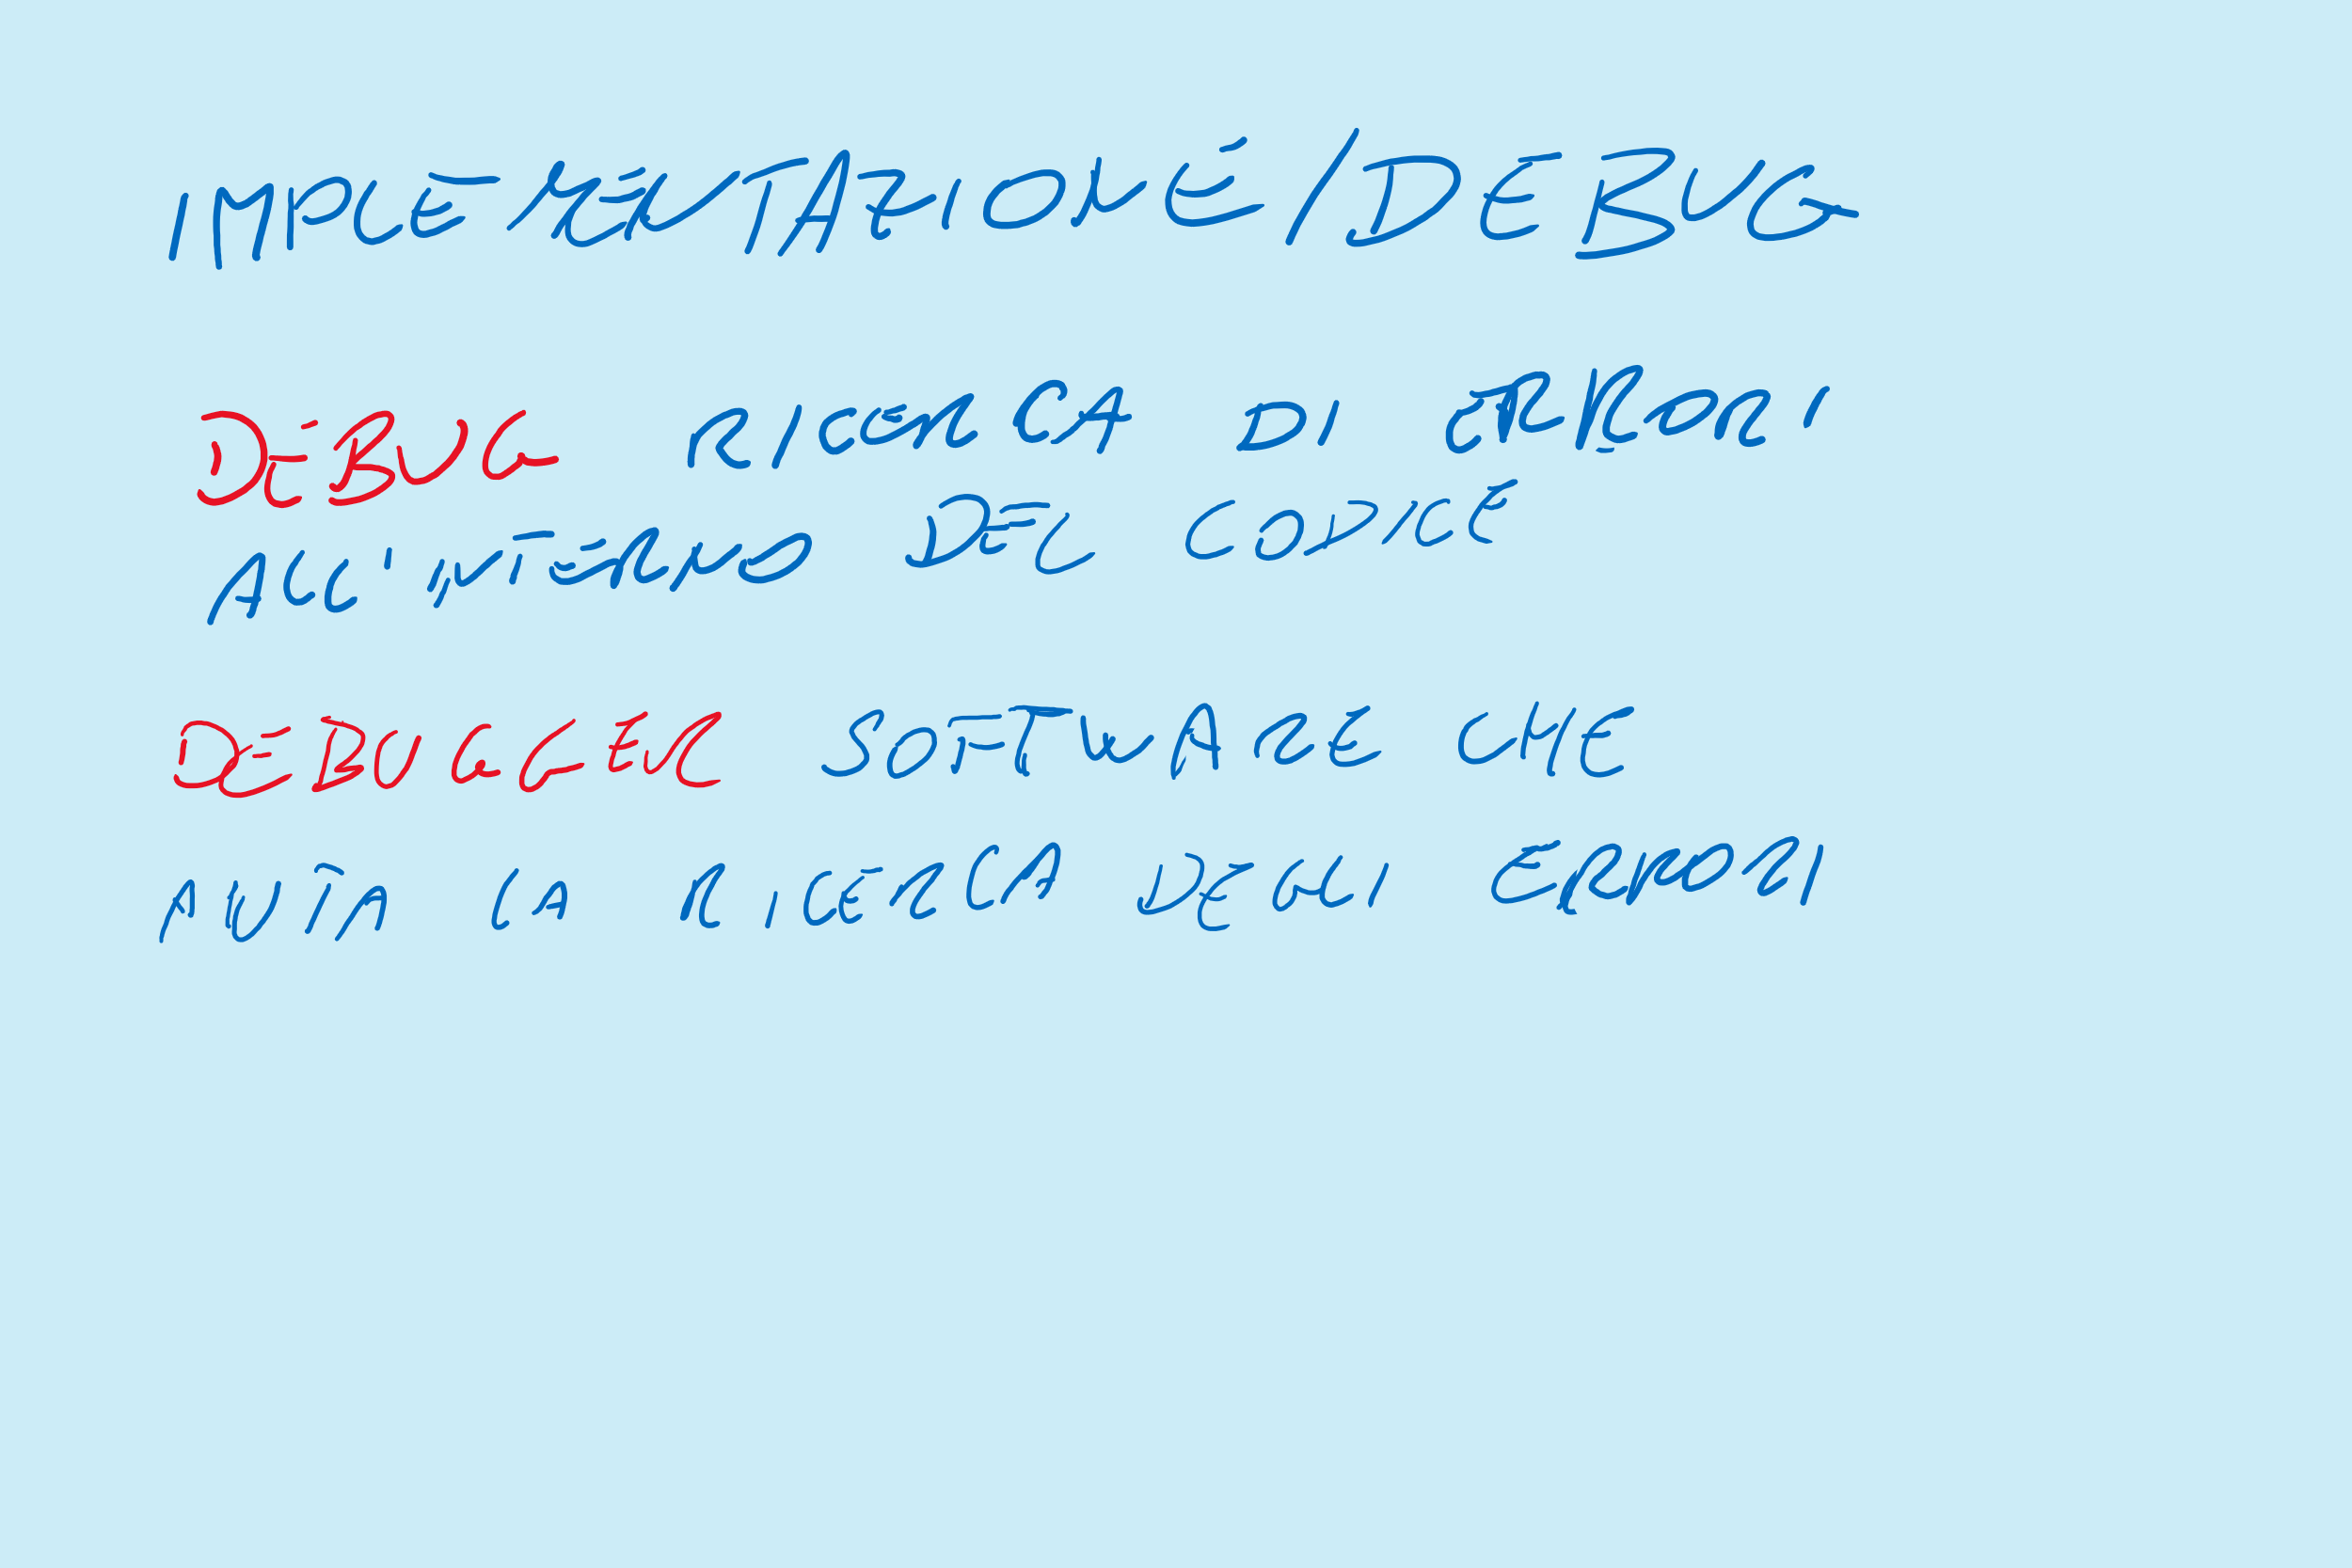 IMPLEMENTAZIONE/DEBUG
DEBUG RICERCA DI ERRORI
ALL'INTERNO DEL CODICE
DEBUGGER SOFTWARE CHE
AIUTA LA RICERCA DEGLI ERRORI